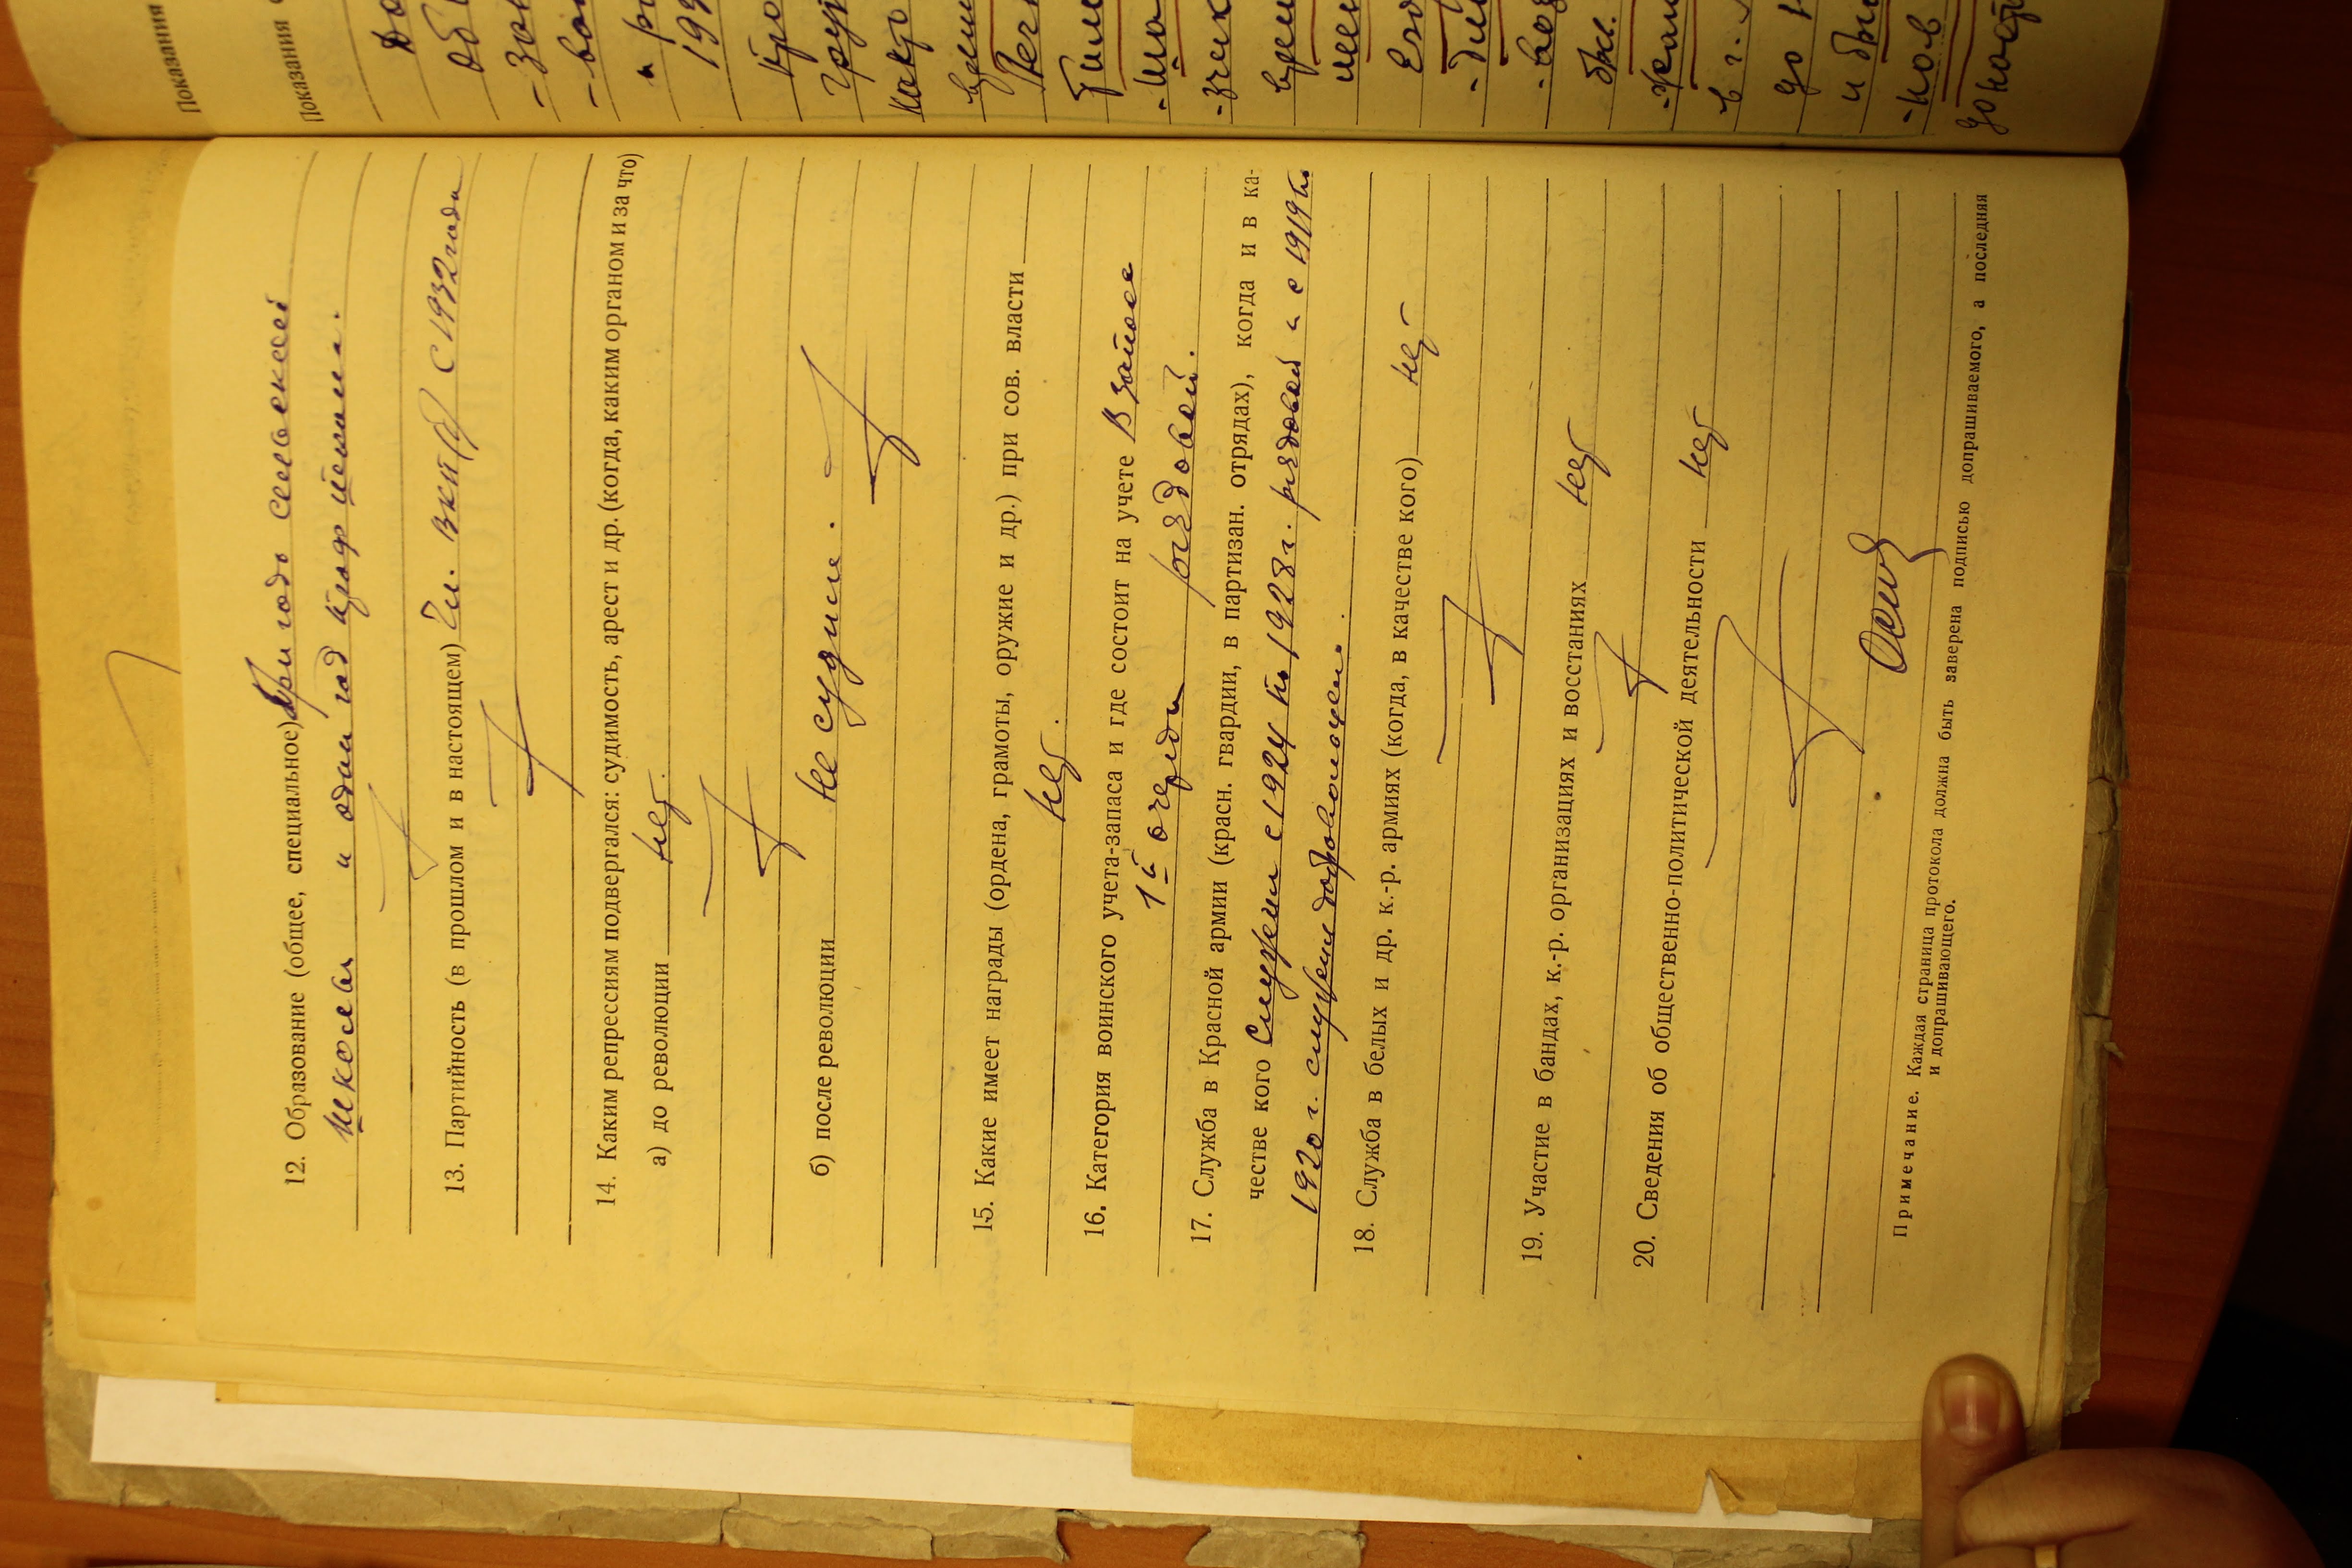 12. Образование (общее, специальное) Три года сельской
школы и один год проф школы.
13. Партийность (в прошлом и в настоящем) Чл. ВКП(б) с 1932 года
14. Каким репрессиям подвергался: судимость, арест и др. (когда, каким органом и за что)
а) до революции нет.
б) после революции не судим.
15. Какие имеет награды (ордена, грамоты, оружие и др.) при сов. власти
нет.
16. Категория воинского учета-запаса и где состоит на учете В запасе
1й очереди рядовой.
17. Служба в Красной армии (красн. гвардии, в партизан. отрядах), когда и в ка-
честве кого Служил с 1924 по 1928 г. рядовой и с 1919 по
1920 г. служил добровольцем.
18. Служба в белых и др. к.-р. армиях (когда, в качестве кого) нет
19. Участие в бандах, к.-р. организациях и восстаниях нет
20. Сведения об общественно-политической деятельности нет
Примечание. Каждая страница протокола должна быть заверена подписью допрашиваемого, а последняя
и допрашивающего.
Показания
Показания